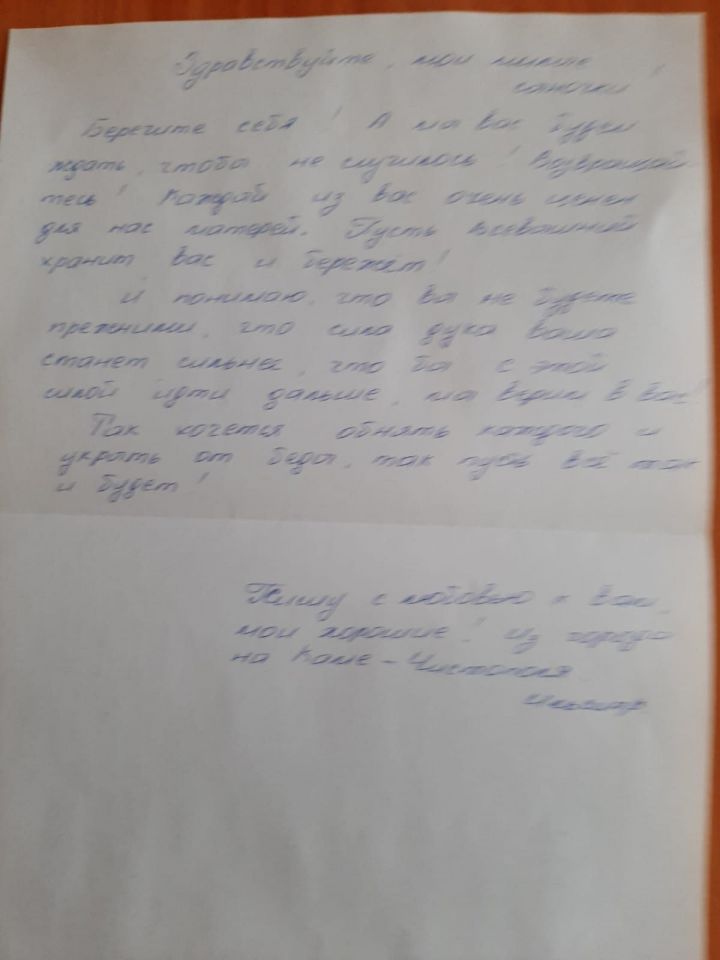 Здравствуйте, мои милые
сыночки!
Берегите себя! А мы вас будем
ждать, чтобы не случилось! Возвращай
тесь! Каждый из вас очень ценен
для нас матерей. Пусть Всевышний
хранит вас и бережёт!
Я понимаю, что вы не будете
прежними, что сила духа ваша
станет сильнее, что бы с этой
силой идти дальше, мы верим в вас!
Так хочется обнять каждого и
укрыть от беды, так пусть всё так
и будет!
Пишу с любовью к Вам,
мои хорошие! из города
на Каме - Чистополя